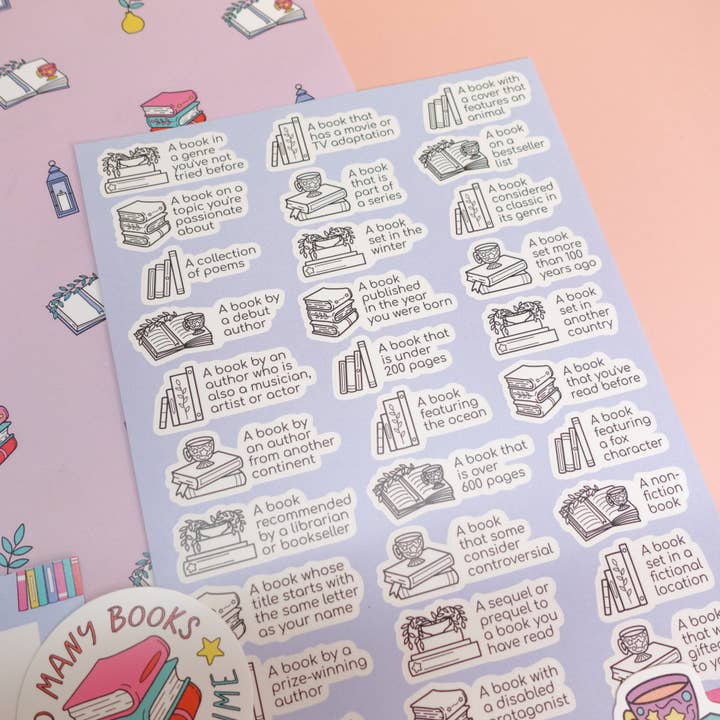 A book in
a genre
you've not
tried before
A book on a
topic you're
passionate
about
A collection
of poems
A book by
a debut
author
A book by an
author who is
also a musician,
artist or actor
A book by
an author
from another
continent
A book
recommended
by a librarian
or bookseller
A book whose
title starts with
the same letter
as your name
A book by a
prize-winning
author
A book that
has a movie or
TV adaptation
A book
that is
part of
a series
A book
set in the
winter
A book
published
in the year
you were born
A book that
is under
200 pages
A book
featuring
the ocean
A book that
is over
600 pages
A book
that some
consider
controversial
A sequel or
prequel to
a book you
have read
A book with
a disabled
protagonist
A book with
a cover that
features an
animal
A book
on a
bestseller
list
A book
considered
a classic in
its genre
A book
set more
than 100
years ago
A book
set in
another
country
A book
that you've
read before
A book
featuring
a fox
character
A non-
fiction
book
A book
set in a
fictional
location
A book
that w
gifted
to y
O MANY BOOKS